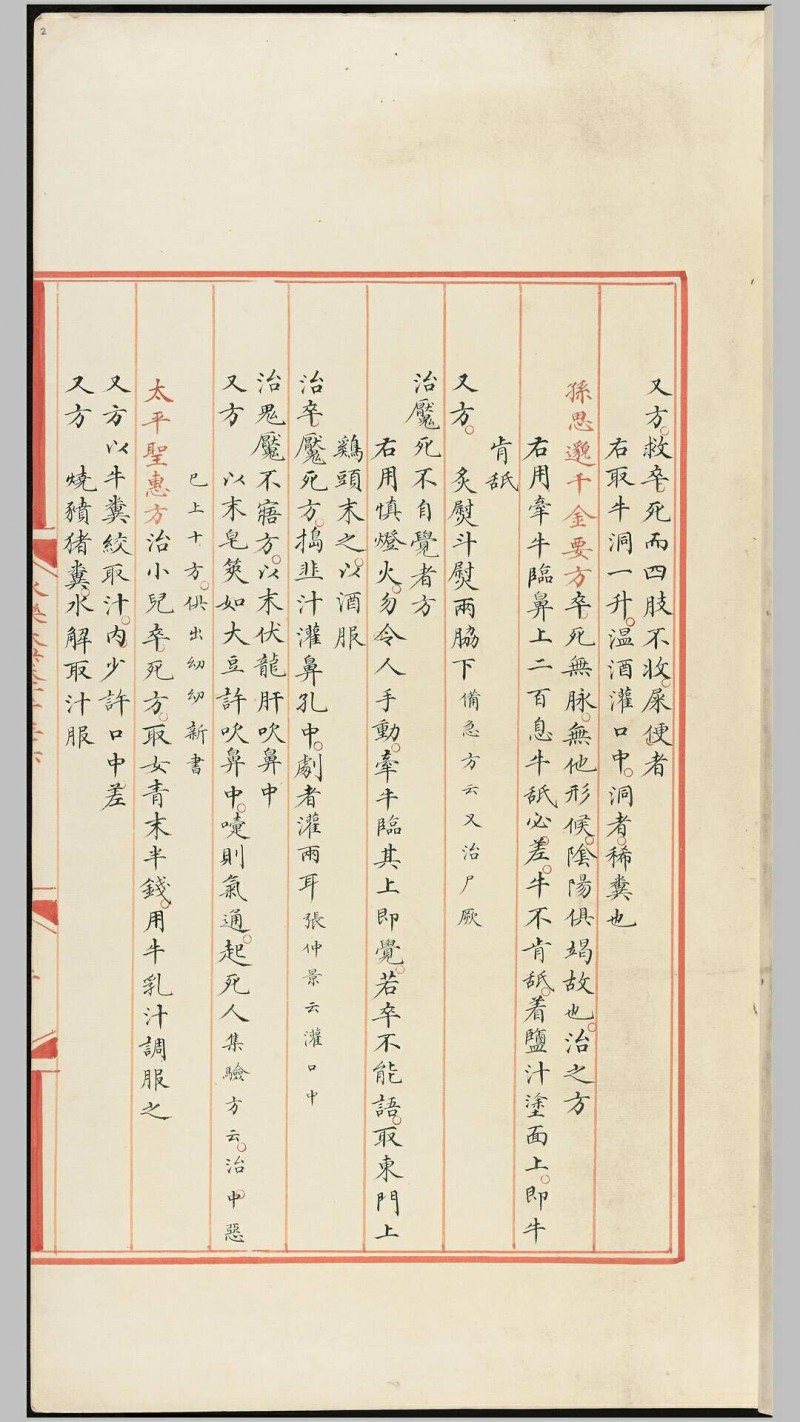 又方。救卒死而四肢不收。屎便者
右取牛洞一升。温酒灌口中。洞者。稀糞也
孫思邈千金要方卒死無脉。無他形候。陰陽俱竭故也。治之方
右用牽牛臨鼻上二百息牛舐必。差。牛不肯舐。着鹽汁塗面上。即牛
肯舐
又方。炙熨斗熨兩脇下備急方云又治尸厥
治魘死不自覺者方
右用慎燈火。勿令人手動。牽牛臨其上即覺。若卒不能語。取東門上
雞頭末之。以酒服
治卒魘死方。搗韭汁灌鼻孔中。劇者灌兩耳張仲景云灌口中
治鬼魘不寤方。以末伏龍肝吹鼻中
又方 以末皂筴如大豆許吹鼻中。嚏則氣通。起死人集驗方云。治中惡
已上十方。俱出幼幼新書
太平聖惠方治小兒卒死方。取女青末半錢。用牛乳汁調服之
又方以牛糞絞取汁。内少許口中差
又方 燒豶猪糞。水解取汁服